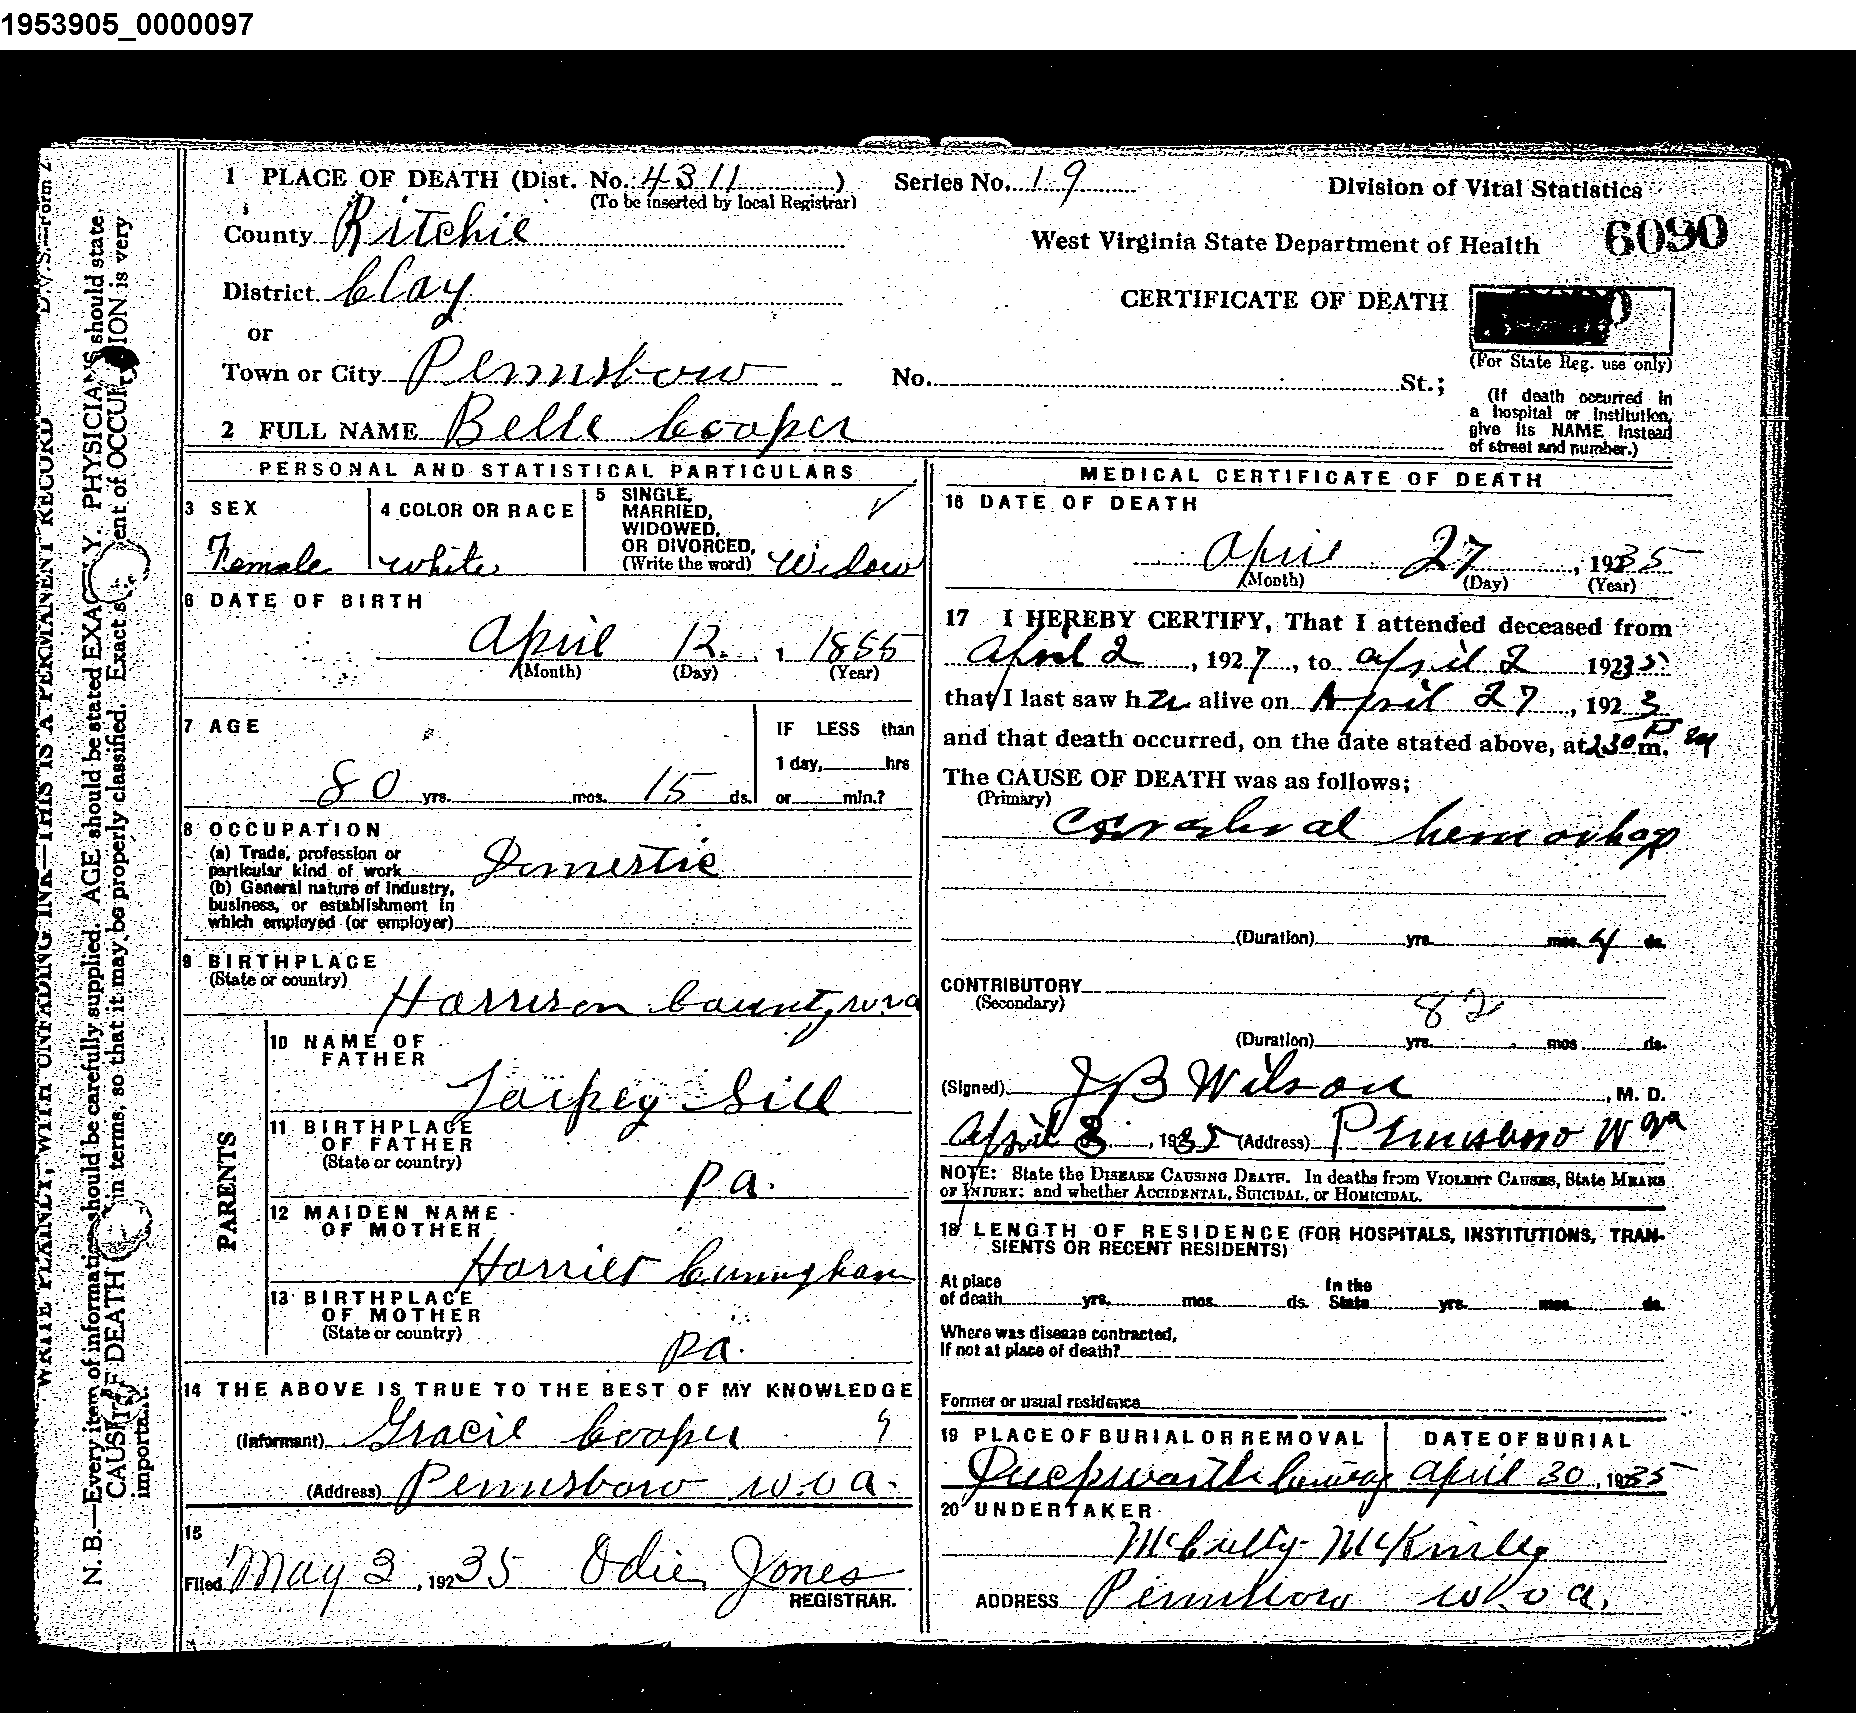 1953905_0000097
1 PLACE OF DEATH (Dist. No. 4311 ) Series No. 19 Division of Vital Statistics
(To be inserted by local Registrar)
County Ritchie West Virginia State Department of Health 6090
District Clay CERTIFICATE OF DEATH
or
(For State Reg. use only)
Town or City Pennsboro No. St.;
(If death occurred in
a hospital or institution,
give its NAME instead
of street and number.)
2 FULL NAME Belle Cooper
PERSONAL AND STATISTICAL PARTICULARS
3 SEX
Female
4 COLOR OR RACE
white
5 SINGLE,
MARRIED,
WIDOWED,
OR DIVORCED,
(Write the word) Widow
6 DATE OF BIRTH
April 12, 1855
(Month) (Day) (Year)
7 AGE
80 yrs. mos. 15 ds.
IF LESS than
1 day, hrs
or min.?
8 OCCUPATION
(a) Trade, profession or
particular kind of work Domestic
(b) General nature of industry,
business, or establishment in
which employed (or employer)
9 BIRTHPLACE
(State or country)
Harrison County W.Va
PARENTS
10 NAME OF
FATHER
Sill
11 BIRTHPLACE
OF FATHER
(State or country)
Pa.
12 MAIDEN NAME
OF MOTHER
Harriet Cuningham
13 BIRTHPLACE
OF MOTHER
(State or country)
Pa.
14 THE ABOVE IS TRUE TO THE BEST OF MY KNOWLEDGE
(Informant) Gracie Cooper
(Address) Pennsboro W.Va.
15
Filed May 3, 19235 Odie Jones
REGISTRAR.
MEDICAL CERTIFICATE OF DEATH
16 DATE OF DEATH
April 27, 1935
(Month) (Day) (Year)
17 I HEREBY CERTIFY, That I attended deceased from
April 2, 1927, to April 2 1935
that I last saw her alive on April 27, 1923
and that death occurred, on the date stated above, at 230 P m.
The CAUSE OF DEATH was as follows;
(Primary)
Cerebral hemorhage
(Duration) yrs. mos. 4 ds.
CONTRIBUTORY
(Secondary)
82
(Duration) yrs. mos. ds.
(Signed) J B Wilson, M. D.
April 1935 (Address) Pennsboro W Va
NOTE: State the DISEASE CAUSING DEATH. In deaths from VIOLENT CAUSES, State MEANS
OF INJURY; and whether ACCIDENTAL, SUICIDAL, or HOMICIDAL.
18 LENGTH OF RESIDENCE (FOR HOSPITALS, INSTITUTIONS, TRAN-
SIENTS OR RECENT RESIDENTS)
At place
of death yrs. mos. ds.
In the
State yrs. mos. ds.
Where was disease contracted,
If not at place of death?
Former or usual residence
19 PLACE OF BURIAL OR REMOVAL
Duckworth
DATE OF BURIAL
April 30, 1935
20 UNDERTAKER
McCullty McKinley
ADDRESS Pennsboro W.Va.
D.V.S.—Form 2
WRITE PLAINLY, WITH UNFADING INK—THIS IS A PERMANENT RECORD
N. B.—Every item of information should be carefully supplied. AGE should be stated EXACTLY. PHYSICIANS should state
CAUSE OF DEATH in terms, so that it may be properly classified. Exact ent of OCCUPATION is very
important.